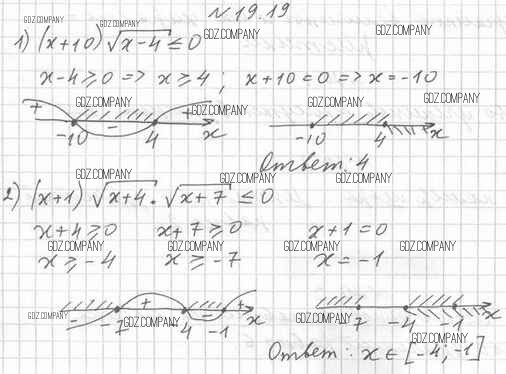 № 19.19
GDZ.COMPANY GDZ.COMPANY
1) (x+10) √(x-4) ≤ 0 GDZ.COMPANY GDZ.COMPANY
x-4 ≥ 0 => x ≥ 4 ; x+10 = 0 => x = -10
GDZ.COMPANY GDZ.COMPANY
+ - + GDZ.COMPANY
-10 4 x -10 4 x
Ответ: 4
GDZ.COMPANY GDZ.COMPANY GDZ.COMPANY
2) (x+1) √(x+4) · √(x+7) ≤ 0
x+4 ≥ 0 x+7 ≥ 0 x+1 = 0
GDZ.COMPANY GDZ.COMPANY GDZ.COMPANY GDZ.COMPANY
x ≥ -4 x ≥ -7 x = -1
- + - +
GDZ.COMPANY -7 GDZ.COMPANY -4 -1 x GDZ.COMPANY -7 -4 -1 x
GDZ.COMPANY
Ответ: x ∈ [-4; -1]